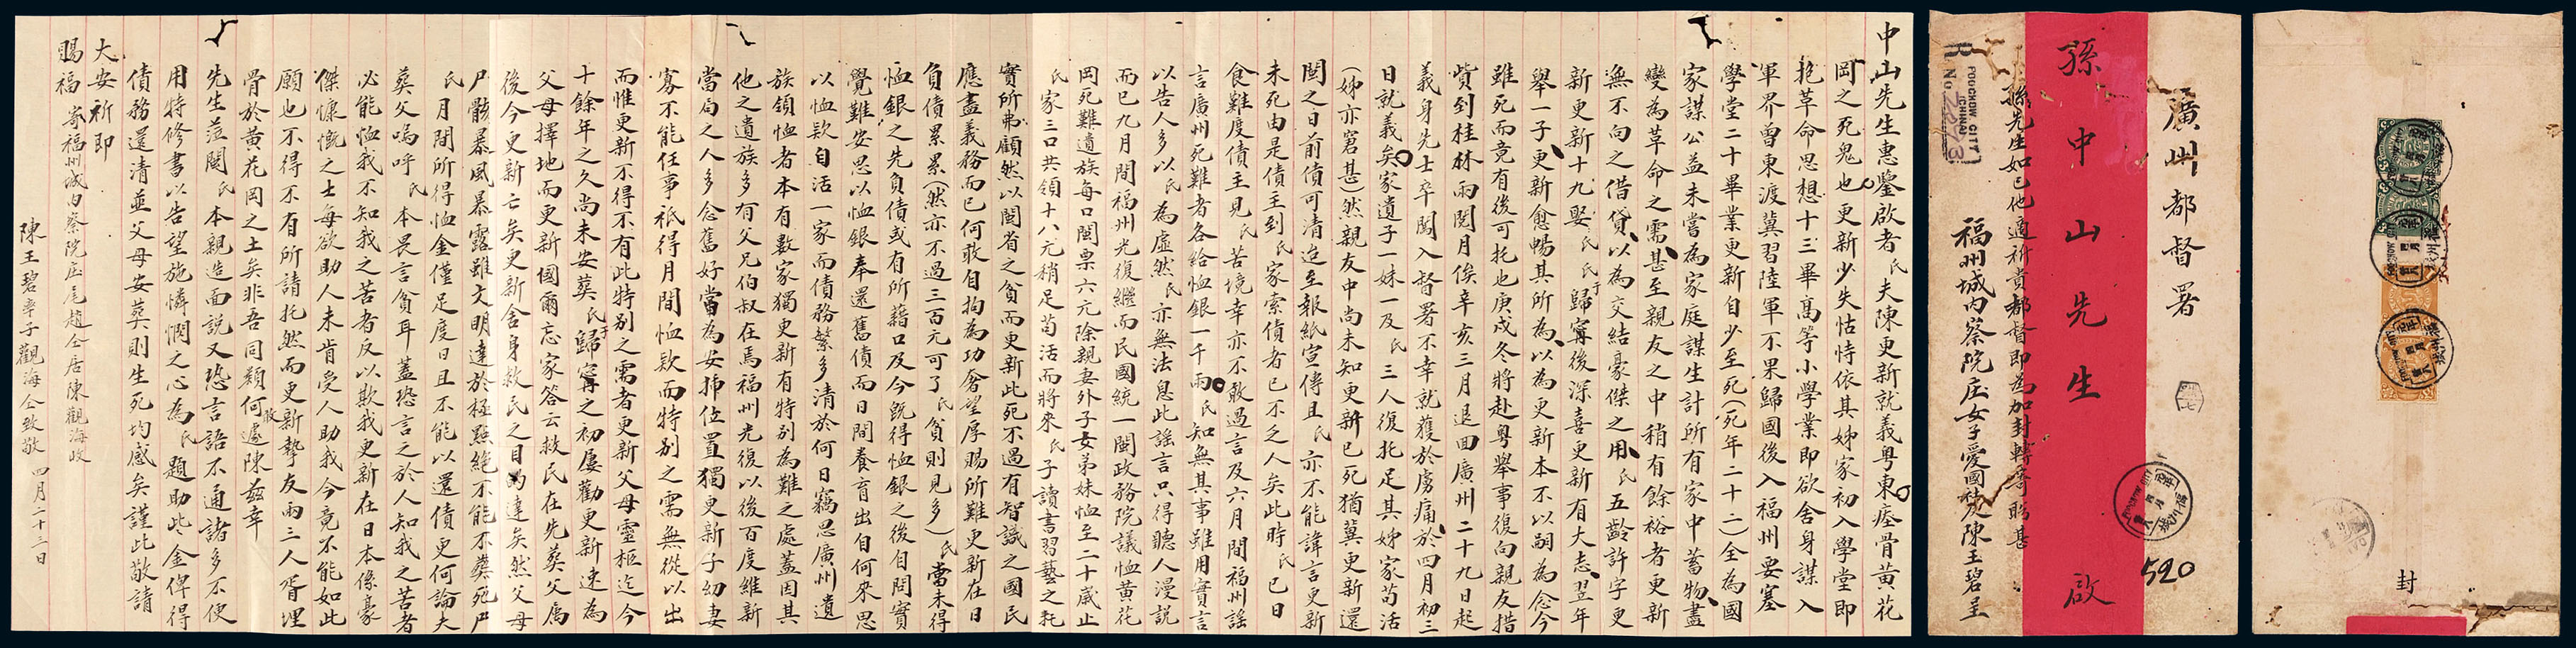 中山先生惠鑒啟者氏夫陳更新就義粵東瘞骨黃花
岡之死鬼也更新少失怙恃依其姊家初入學堂即
抱草命思想十三畢高等小學業即欲舍身謀入
軍界曾東渡冀習陸軍不果歸國後入福州要塞
學堂二十畢業更新自少至死(死年二十二)全為國
家謀公益未嘗為家庭謀生計所有家中蓄物盡
變為草命之需甚至親友之中稍有餘裕者更新
無不向之借貸以為交結豪傑之用氏五齡許字更
新更新十九娶氏氏于歸寧後深喜更新有大志翌年
舉一子更新愈暢其所為以為更新本不以嗣為念今
雖死而竟有後可托也庚戌冬將赴粵舉事復向親友措
貲到桂林兩閱月俟辛亥三月退回廣州二十九日起
義身先士卒闖入督署不幸就獲於虜痛於四月初三
日就義矣家遺子一妹一及氏三人復托足其姊家苟活
(姊亦窘甚)然親友中尚未知更新已死猶冀更新還
閩之日前債可清迨至報紙宣傳且氏亦不能諱言更新
未死由是債主到氏家索債者已不乏人矣此時氏已日
食難度債主見氏苦境幸亦不敢過言及六月間福州謠
言廣州死難者各給恤銀一千兩氏知無其事雖用實言
以告人多以氏為虛然氏亦無法息此謠言只得聽人漫説
而已九月間福州光復繼而民國統一閩政務院議恤黃花
岡死難遺族每口閩票六元除親妻外子女弟妹恤至二十歲止
氏家三口共領十八元稍足苟活而將來氏子讀書習藝之耗
實所弗顧然以閩省之貧而更新此死不過有智識之國民
應盡義務而已何敢自拘為功奢望厚賜所難更新在日
負債累累(然亦不過三百元可了氏貧則見多)氏當未得
恤銀之先負債或有所藉口及今既得恤銀之後自問實
覺難安思以恤銀奉還舊債而日間養育出自何來思
以恤款自活一家而債務繁多清於何日竊思廣州遺
族領恤者本有數家獨更新有特別為難之處蓋因其
他之遺族多有父兄伯叔在焉福州光復以後百度維新
當局之人多念舊好當為安插位置獨更新子幼妻
寡不能任事祇得月間恤款而特別之需無從以出
而惟更新不得不有此特別之需者更新父母靈柩迄今
十餘年之久尚未安葬氏于歸寧之初屢勸更新速為
父母擇地而更新國爾忘家答云救民在先葬父属
後今更新亡矣更新舍身救民之目的達矣然父母
尸骸暴風暴露雖文明達於極點絕不能不葬死尸
氏月間所得恤金僅足度日且不能以還債更何論夫
葬父嗚呼氏本畏言貧耳蓋恐言之於人知我之苦者
必能恤我不知我之苦者反以欺我更新在日本係豪
傑慷慨之士每欲助人未肯受人助我今竟不能如此
願也不得不有所請托然而更新摯友兩三人胥埋
骨於黃花岡之土矣非吾同類何敢遽陳茲幸
先生蒞閩氏本親造面説又恐言語不通諸多不便
用特修書以告望施憐憫之心為氏題助此金俾得
債務還清並父母安葬則生死均感矣謹此敬請
大安祈即
賜福 寄福州城內察院庄尾趙仝居陳觀海收
陳王碧率子觀海仝致敬 四月二十三日
廣州都督署
孫中山先生 啟
孫先生如已他適祈貴都督即為加封轉寄盼甚
福州城內察院庄女子愛國社陳王碧呈
R
FOOCHOW CITY
(CHINA)
No 2273
520
封